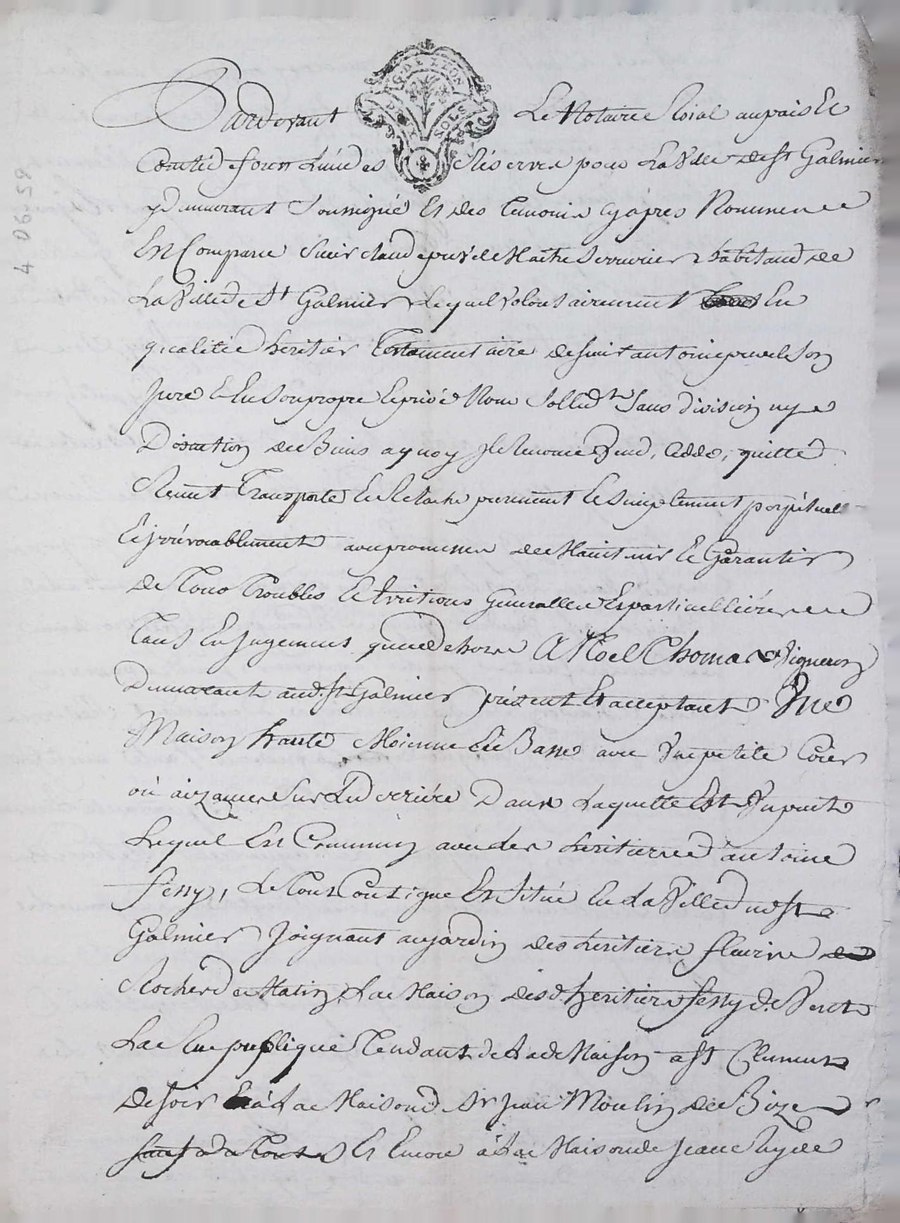 Pardevant Le Notaire Roial au païs Et
Comté de forest L'un des Réservés pour La Ville de St Galmier
y demeurant Soussigné Et des temoins cyaprès Nommés
Est Comparu Sieur Claude Maître Serrurier habitant de
La Ville de St Galmier Lequel Volontairement En
qualité d'heritier Testamentaire de feu antoine son
pere Et En son propre Et privé Nom Sollidt Sans division ny
Discution de Biens a quoy Il Renonce Vend, Cedde, quitte
Remet Transporte Et Relache purement Et simplement perpétuell
Et irrévocablement avec promesse de Maintenir Et Garantir
De Tous Troubles Et Evictions Generalles Et particullières
Tant En Jugement que dehors A Noel Thomas Vigneron
Demeurant aud. St Galmier présent Et acceptant Une
Maison haute Moienne Et Basse avec Une petite Cour
ou aizances Sur Le Derrière Dans Laquelle Est Un puits
Lequel Est Commun avec Les héritiers d'antoine
fessy, Le Tout Contigue Et Situé En La Ville du St
Galmier Joignant au jardin des héritiers fleurie de
Rocher de Matin, La Maison desd. heritiers fessy de Vent
La Rue publique Tendant de Maison a St Clement
De soir Et à La Maison d Sr Jean Moulin de Bize
Et Encore à La Maison de
4 06 59
G. DE LYON
SOLS